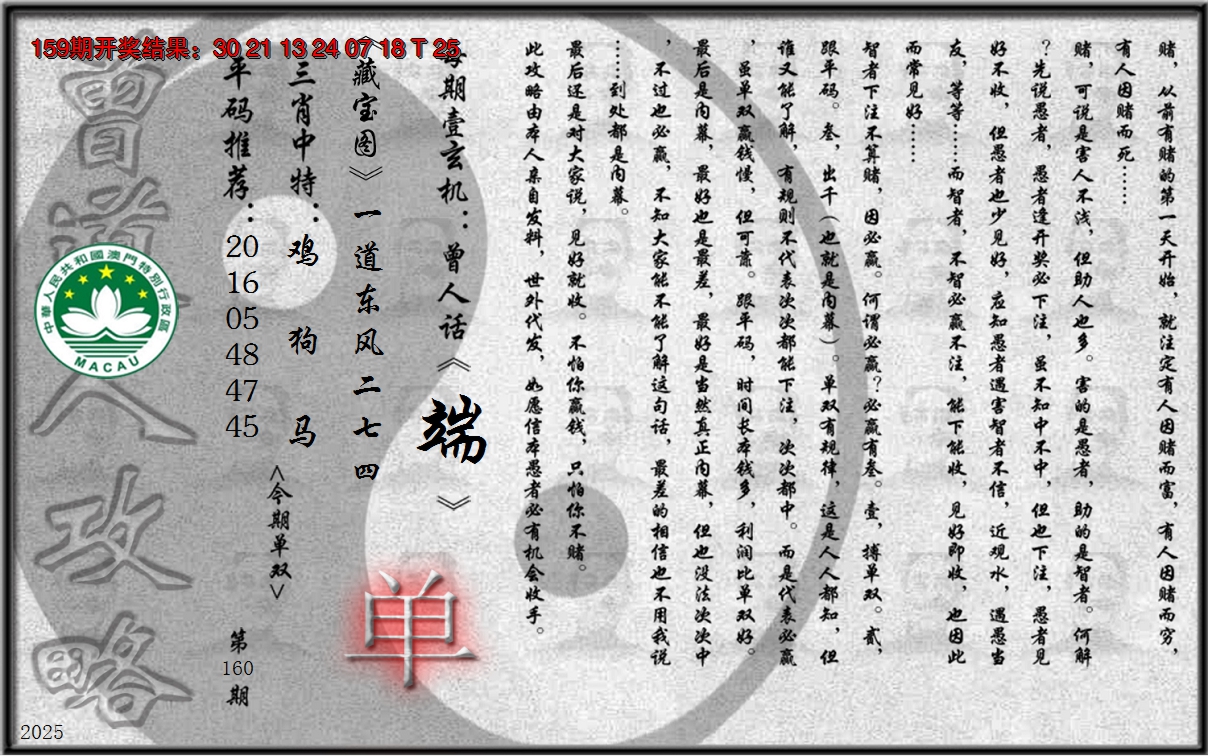 159期开奖结果：30 21 13 24 07 18 T 25
赌，从前有赌的第一天开始，就注定有人因赌而富，有人因赌而穷，
有人因赌而死……
赌，可说是害人不浅，但助人也多。害的是愚者，助的是智者。何解
？先说愚者，愚者逢开奖必下注，虽不知中不中，但也下注，愚者见
好不收，但愚者也少见好，应知愚者遇害智者不信，近观水，遇愚当
友，等等……而智者，不智必赢不注，能下能收，见好即收，也因此
而常见好……
智者下注不算赌，因必赢。何谓必赢？必赢有叁。壹，搏单双。贰，
跟平码。叁，出千（也就是内幕）。单双有规律，这是人人都知，但
谁又能了解，有规则不代表次次都能下注，次次都中。而是代表必赢
，虽单双赢钱慢，但可靠。跟平码，时间长本钱多，利润比单双好。
最后是内幕，最好也是最差，最好是当然真正内幕，但也没法次次中
，不过也必赢，不知大家能不能了解这句话，最差的相信也不用我说
……到处都是内幕。
最后还是对大家说，见好就收。不怕你赢钱，只怕你不赌。
此攻略由本人亲自发料，世外代发，如愿信本愚者必有机会收手。
每期壹玄机：曾人话《端》
《藏宝图》一道东风二七四
单
三肖中特：鸡 狗 马
<今期单双>
平码推荐：20 16 05 48 47 45
第160期
曾道人攻略
中華人民共和國澳門特別行政區
MACAU
2025